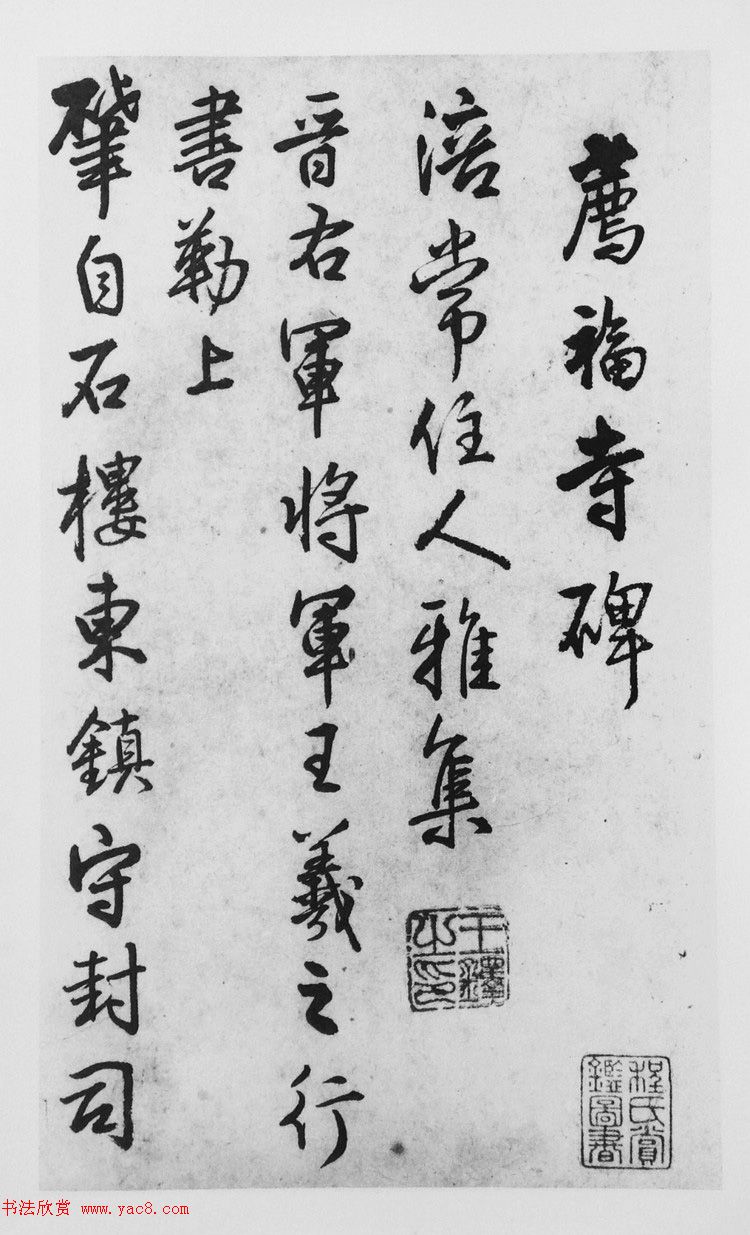 薦福寺碑
涪常住人雅集
晉右軍將軍王羲之行
書勒上
肇自石樓東鎮守封司
王鐸之印
程氏賞鑑圖書
书法欣赏 www.yac8.com